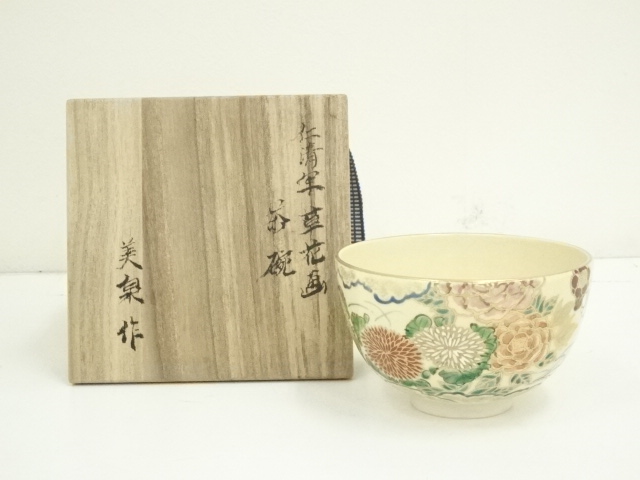 仁清写草花画
茶碗
美泉作